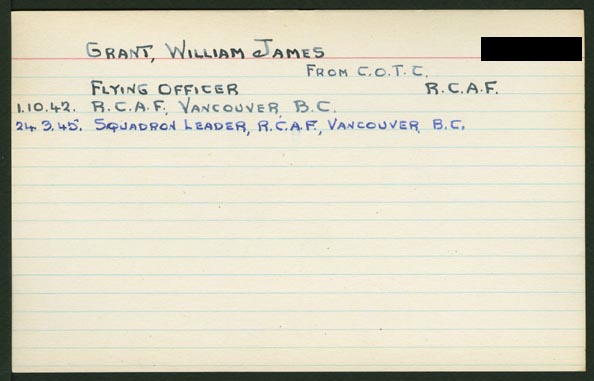 GRANT, WILLIAM JAMES
FROM C.O.T.C.
FLYING OFFICER R.C.A.F.
1.10.42. R.C.A.F., VANCOUVER, B.C.
24.3.45. SQUADRON LEADER, R.C.A.F., VANCOUVER, B.C.